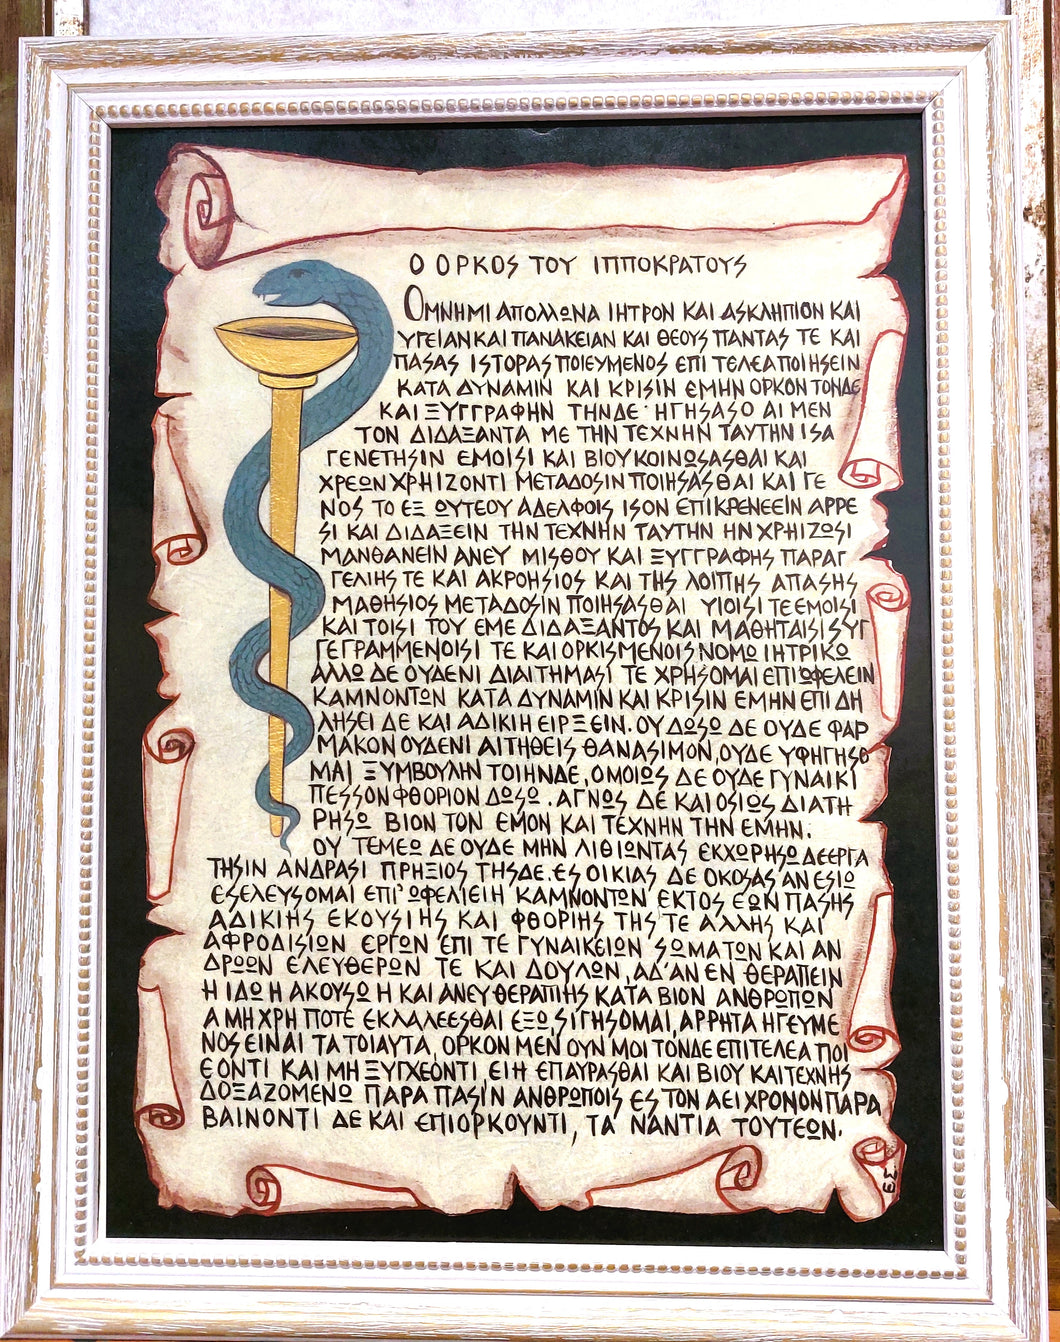 Ο ΟΡΚΟΣ ΤΟΥ ΙΠΠΟΚΡΑΤΟΥΣ
ΟΜΝΗΜΙ ΑΠΟΛΛΩΝΑ ΙΗΤΡΟΝ ΚΑΙ ΑΣΚΛΗΠΙΟΝ ΚΑΙ
ΥΓΕΙΑΝ ΚΑΙ ΠΑΝΑΚΕΙΑΝ ΚΑΙ ΘΕΟΥΣ ΠΑΝΤΑΣ ΤΕ ΚΑΙ
ΠΑΣΑΣ ΙΣΤΟΡΑΣ ΠΟΙΕΥΜΕΝΟΣ ΕΠΙ ΤΕΛΕΑ ΠΟΙΗΣΕΙΝ
ΚΑΤΑ ΔΥΝΑΜΙΝ ΚΑΙ ΚΡΙΣΙΝ ΕΜΗΝ ΟΡΚΟΝ ΤΟΝΔΕ
ΚΑΙ ΞΥΓΓΡΑΦΗΝ ΤΗΝΔΕ· ΗΓΗΣΑΣΟΑΙ ΜΕΝ
ΤΟΝ ΔΙΔΑΞΑΝΤΑ ΜΕ ΤΗΝ ΤΕΧΝΗΝ ΤΑΥΤΗΝ ΙΣΑ
ΓΕΝΕΤΗΣΙΝ ΕΜΟΙΣΙ ΚΑΙ ΒΙΟΥ ΚΟΙΝΩΣΑΣΘΑΙ ΚΑΙ
ΧΡΕΩΝ ΧΡΗΙΖΟΝΤΙ ΜΕΤΑΔΟΣΙΝ ΠΟΙΗΣΑΣΘΑΙ ΚΑΙ ΓΕ
ΝΟΣ ΤΟ ΕΞ ΩΥΤΕΟΥ ΑΔΕΛΦΟΙΣ ΙΣΟΝ ΕΠΙΚΡΕΝΕΕΙΝ ΑΡΡΕ
ΣΙ ΚΑΙ ΔΙΔΑΞΕΙΝ ΤΗΝ ΤΕΧΝΗΝ ΤΑΥΤΗΝ ΗΝ ΧΡΗΙΖΩΣΙ
ΜΑΝΘΑΝΕΙΝ ΑΝΕΥ ΜΙΣΘΟΥ ΚΑΙ ΞΥΓΓΡΑΦΗΣ ΠΑΡΑΓ
ΓΕΛΙΗΣ ΤΕ ΚΑΙ ΑΚΡΟΗΣΙΟΣ ΚΑΙ ΤΗΣ ΛΟΙΠΗΣ ΑΠΑΣΗΣ
ΜΑΘΗΣΙΟΣ ΜΕΤΑΔΟΣΙΝ ΠΟΙΗΣΑΣΘΑΙ ΥΙΟΙΣΙ ΤΕ ΕΜΟΙΣΙ
ΚΑΙ ΤΟΙΣΙ ΤΟΥ ΕΜΕ ΔΙΔΑΞΑΝΤΟΣ ΚΑΙ ΜΑΘΗΤΑΙΣΙ ΣΥΓ
ΓΕΓΡΑΜΜΕΝΟΙΣΙ ΤΕ ΚΑΙ ΟΡΚΙΣΜΕΝΟΙΣ ΝΟΜΩ ΙΗΤΡΙΚΩ
ΑΛΛΩ ΔΕ ΟΥΔΕΝΙ ΔΙΑΙΤΗΜΑΣΙ ΤΕ ΧΡΗΣΟΜΑΙ ΕΠΙ ΩΦΕΛΕΙΝ
ΚΑΜΝΟΝΤΩΝ ΚΑΤΑ ΔΥΝΑΜΙΝ ΚΑΙ ΚΡΙΣΙΝ ΕΜΗΝ ΕΠΙ ΔΗ
ΛΗΣΕΙ ΔΕ ΚΑΙ ΑΔΙΚΙΗ ΕΙΡΞΕΙΝ. ΟΥ ΔΩΣΩ ΔΕ ΟΥΔΕ ΦΑΡ
ΜΑΚΟΝ ΟΥΔΕΝΙ ΑΙΤΗΘΕΙΣ ΘΑΝΑΣΙΜΟΝ, ΟΥΔΕ ΥΦΗΓΗΣΟ
ΜΑΙ ΞΥΜΒΟΥΛΗΝ ΤΟΙΗΝΔΕ, ΟΜΟΙΩΣ ΔΕ ΟΥΔΕ ΓΥΝΑΙΚΙ
ΠΕΣΣΟΝ ΦΘΟΡΙΟΝ ΔΩΣΩ. ΑΓΝΩΣ ΔΕ ΚΑΙ ΟΣΙΩΣ ΔΙΑΤΗ
ΡΗΣΩ ΒΙΟΝ ΤΟΝ ΕΜΟΝ ΚΑΙ ΤΕΧΝΗΝ ΤΗΝ ΕΜΗΝ.
ΟΥ ΤΕΜΕΩ ΔΕ ΟΥΔΕ ΜΗΝ ΛΙΘΙΩΝΤΑΣ ΕΚΧΩΡΗΣΩ ΔΕ ΕΡΓΑ
ΤΗΣΙΝ ΑΝΔΡΑΣΙ ΠΡΗΞΙΟΣ ΤΗΣΔΕ. ΕΣ ΟΙΚΙΑΣ ΔΕ ΟΚΟΣΑΣ ΑΝ ΕΣΙΩ
ΕΣΕΛΕΥΣΟΜΑΙ ΕΠ' ΩΦΕΛΙΕΙΗ ΚΑΜΝΟΝΤΩΝ ΕΚΤΟΣ ΕΩΝ ΠΑΣΗΣ
ΑΔΙΚΙΗΣ ΕΚΟΥΣΙΗΣ ΚΑΙ ΦΘΟΡΙΗΣ ΤΗΣ ΤΕ ΑΛΛΗΣ ΚΑΙ
ΑΦΡΟΔΙΣΙΩΝ ΕΡΓΩΝ ΕΠΙ ΤΕ ΓΥΝΑΙΚΕΙΩΝ ΣΩΜΑΤΩΝ ΚΑΙ ΑΝ
ΔΡΩΩΝ ΕΛΕΥΘΕΡΩΝ ΤΕ ΚΑΙ ΔΟΥΛΩΝ, ΑΔ'ΑΝ ΕΝ ΘΕΡΑΠΕΙΝ
Η ΙΔΩ Η ΑΚΟΥΣΩ Η ΚΑΙ ΑΝΕΥ ΘΕΡΑΠΙΗΣ ΚΑΤΑ ΒΙΟΝ ΑΝΘΡΩΠΩΝ
Α ΜΗ ΧΡΗ ΠΟΤΕ ΕΚΛΑΛΕΕΣΘΑΙ ΕΞΩ, ΣΙΓΗΣΟΜΑΙ, ΑΡΡΗΤΑ ΗΓΕΥΜΕ
ΝΟΣ ΕΙΝΑΙ ΤΑ ΤΟΙΑΥΤΑ, ΟΡΚΟΝ ΜΕΝ ΟΥΝ ΜΟΙ ΤΟΝΔΕ ΕΠΙΤΕΛΕΑ ΠΟΙ
ΕΟΝΤΙ ΚΑΙ ΜΗ ΞΥΓΧΕΟΝΤΙ, ΕΙΗ ΕΠΑΥΡΑΣΘΑΙ ΚΑΙ ΒΙΟΥ ΚΑΙ ΤΕΧΝΗΣ
ΔΟΞΑΖΟΜΕΝΩ ΠΑΡΑ ΠΑΣΙΝ ΑΝΘΡΩΠΟΙΣ ΕΣ ΤΟΝ ΑΕΙ ΧΡΟΝΟΝ ΠΑΡΑ
ΒΑΙΝΟΝΤΙ ΔΕ ΚΑΙ ΕΠΙΟΡΚΟΥΝΤΙ, ΤΑ ΝΑΝΤΙΑ ΤΟΥΤΕΩΝ.
ΕΣ